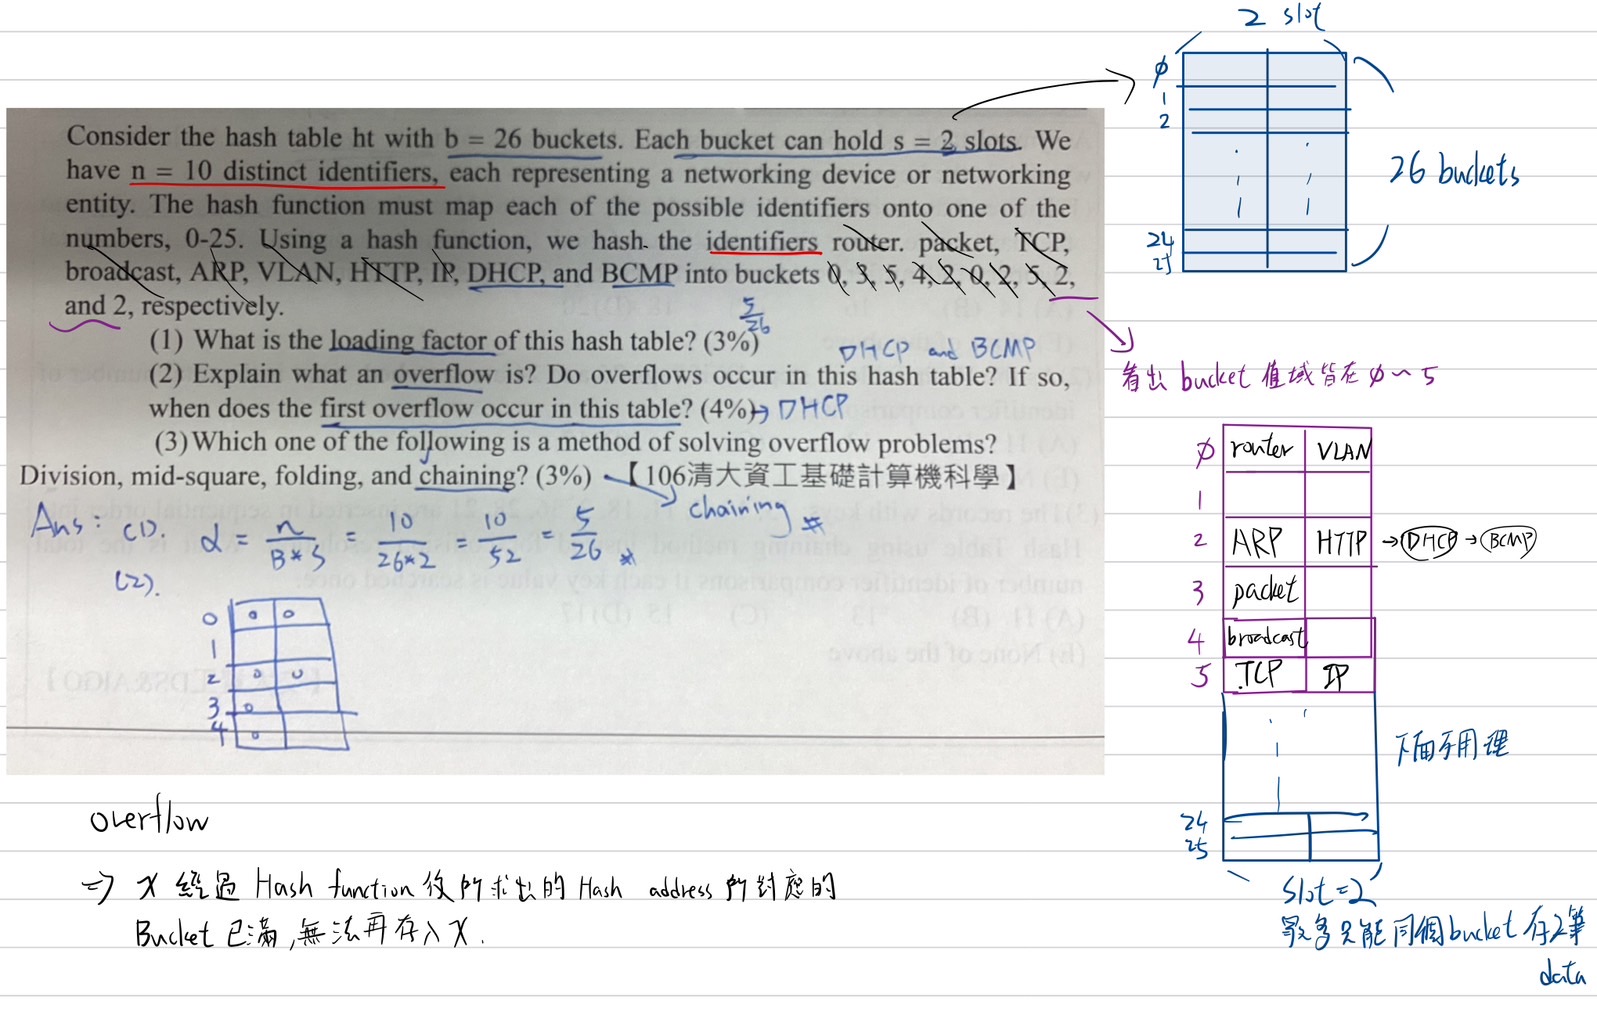 2 slot
0
1
2
24
25
26 buckets
Consider the hash table ht with b = 26 buckets. Each bucket can hold s = 2 slots. We
have n = 10 distinct identifiers, each representing a networking device or networking
entity. The hash function must map each of the possible identifiers onto one of the
numbers, 0-25. Using a hash function, we hash the identifiers router. packet, TCP,
broadcast, ARP, VLAN, HTTP, IP, DHCP, and BCMP into buckets 0, 3, 5, 4, 2, 0, 2, 5, 2,
and 2, respectively.
5/26
(1) What is the loading factor of this hash table? (3%)
DHCP and BCMP
(2) Explain what an overflow is? Do overflows occur in this hash table? If so,
when does the first overflow occur in this table? (4%)→ DHCP
(3)Which one of the following is a method of solving overflow problems?
Division, mid-square, folding, and chaining? (3%)【106清大資工基礎計算機科學】
chaining #
看出 bucket 值域皆在 0~5
Ans: (1). α = n/B*S = 10/26*2 = 10/52 = 5/26 *
(2).
0
1
2
3
4
0 router VLAN
1
2 ARP HTTP → DHCP → BCMP
3 packet
4 broadcast
5 TCP IP
下面不用理
24
25
slot=2
最多只能同個bucket存2筆
data
overflow
⇒ X 經過 Hash function 後所求出的 Hash address 所對應的
Bucket 已滿,無法再存入X.